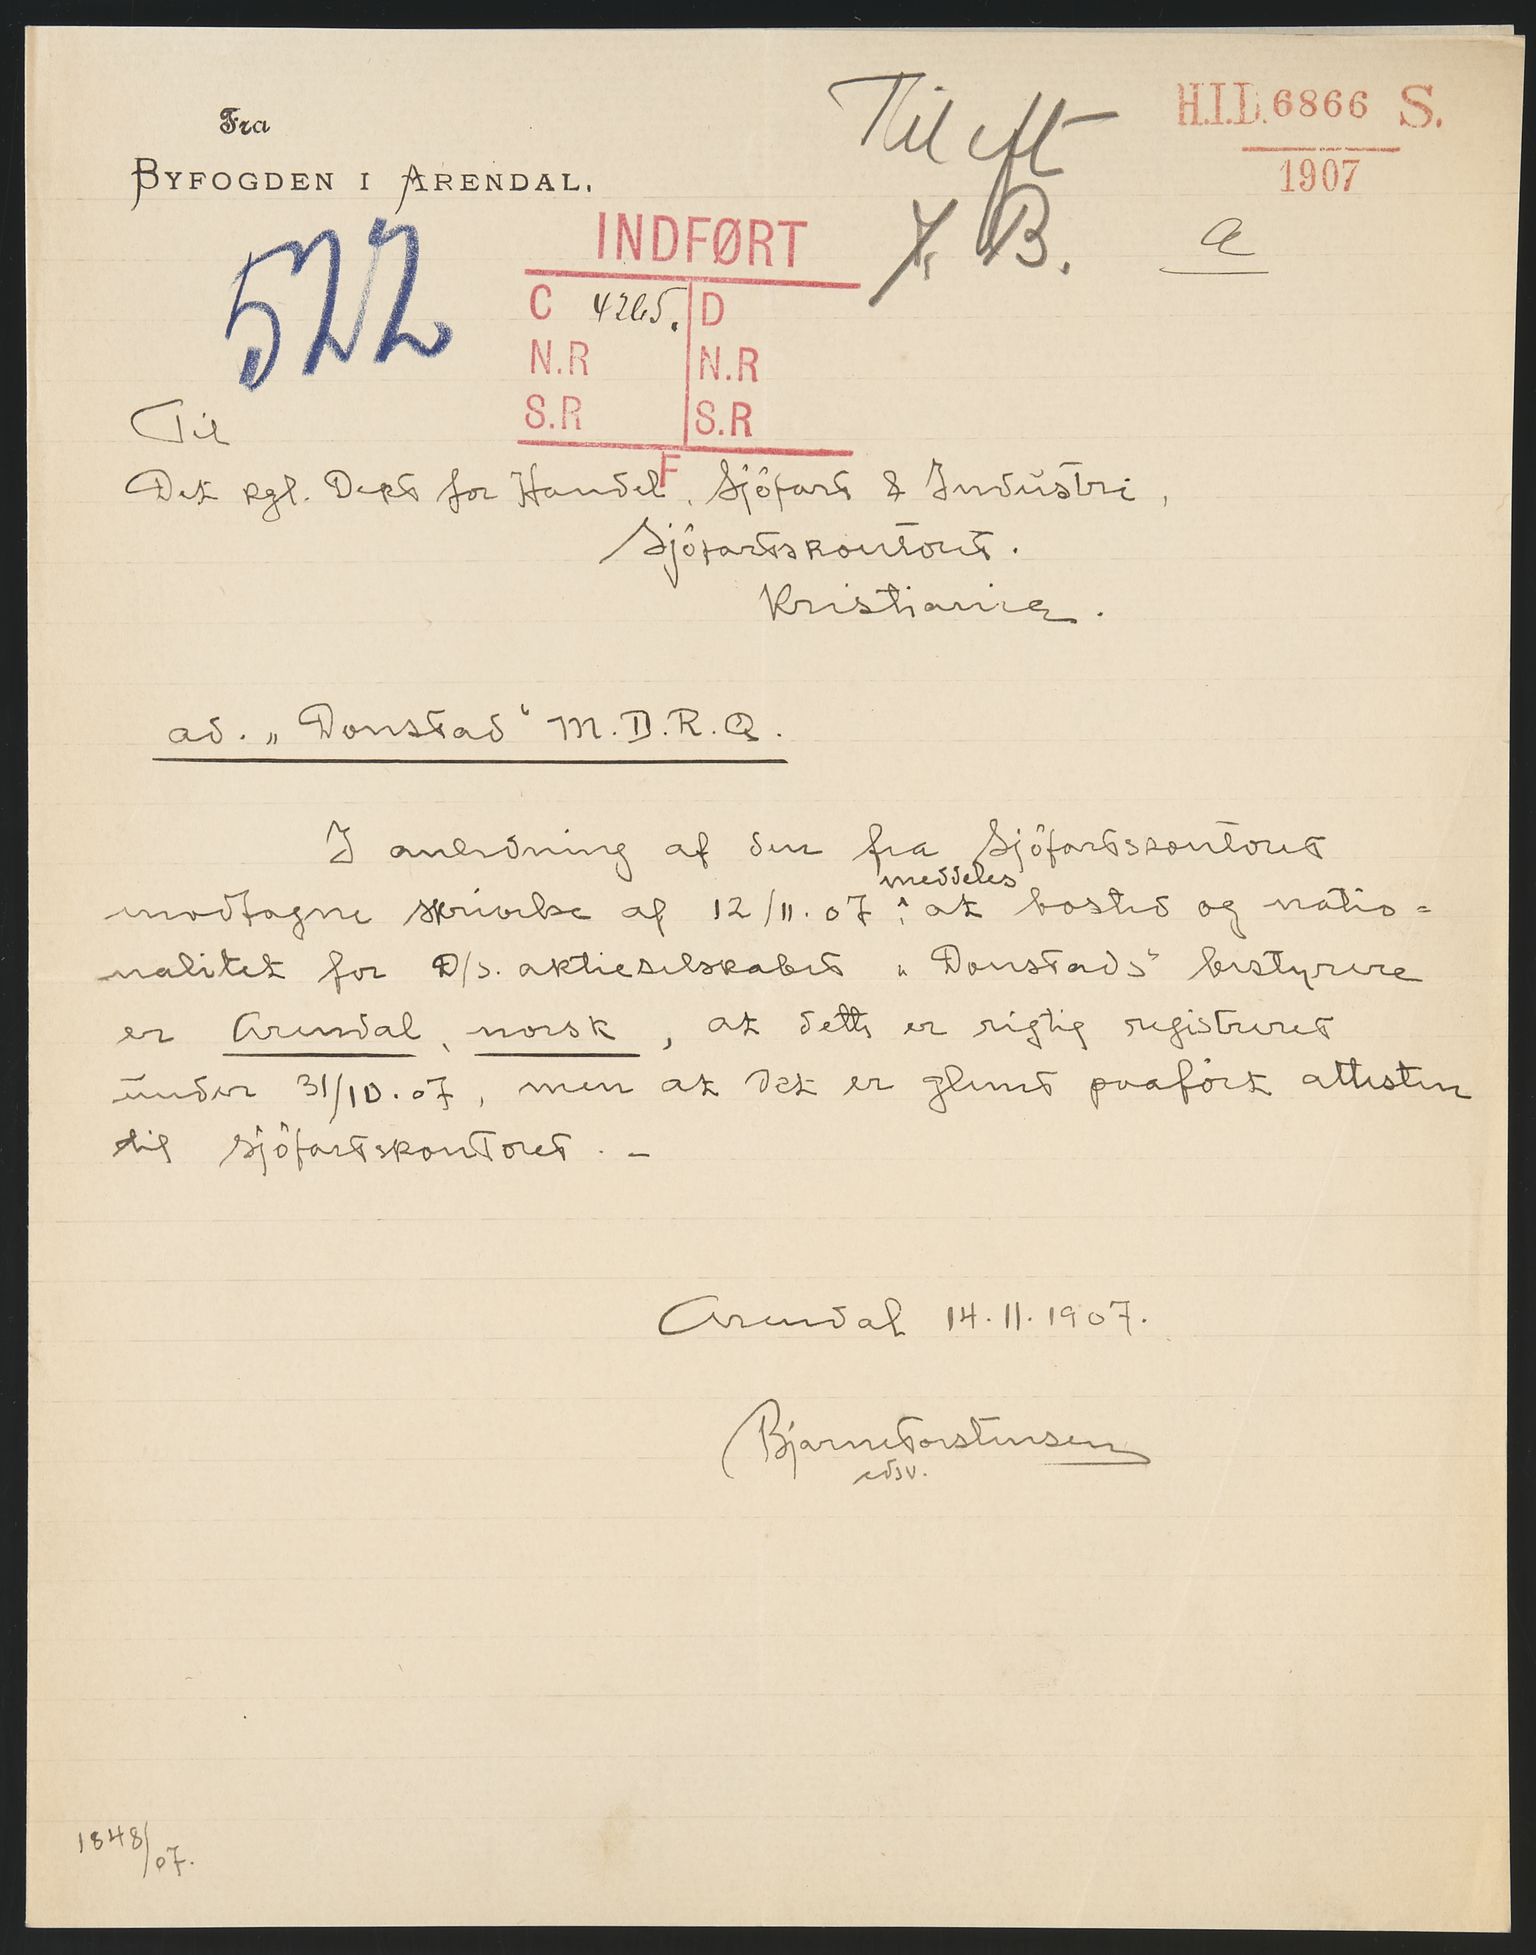 Fra
BYFOGDEN I ARENDAL.
Til eft
B.
H.I.D. 6866 S.
1907
a
522
INDFØRT
C 4265. D
N.R N.R
S.R S.R
F
Til
Det kgl. Dept for Handel, Sjöfart & Industri,
Sjöfartskontoret.
Kristiania.
ad. „Donstad“ M.D.R.Q.
I anledning af den fra Sjöfartskontoret
modtagne skrivelse af 12/11.07 meddeles, at bosted og natio=
nalitet for D/s. aktieselskabet „Donstads“ bestyrere
er Arendal, norsk, at dette er rigtig registreret
under 31/10.07, men at det er glemt paafört attesten
til Sjöfartskontoret. –
Arendal 14.11.1907.
Bjarne Torstensen
edsv.
1848/07.